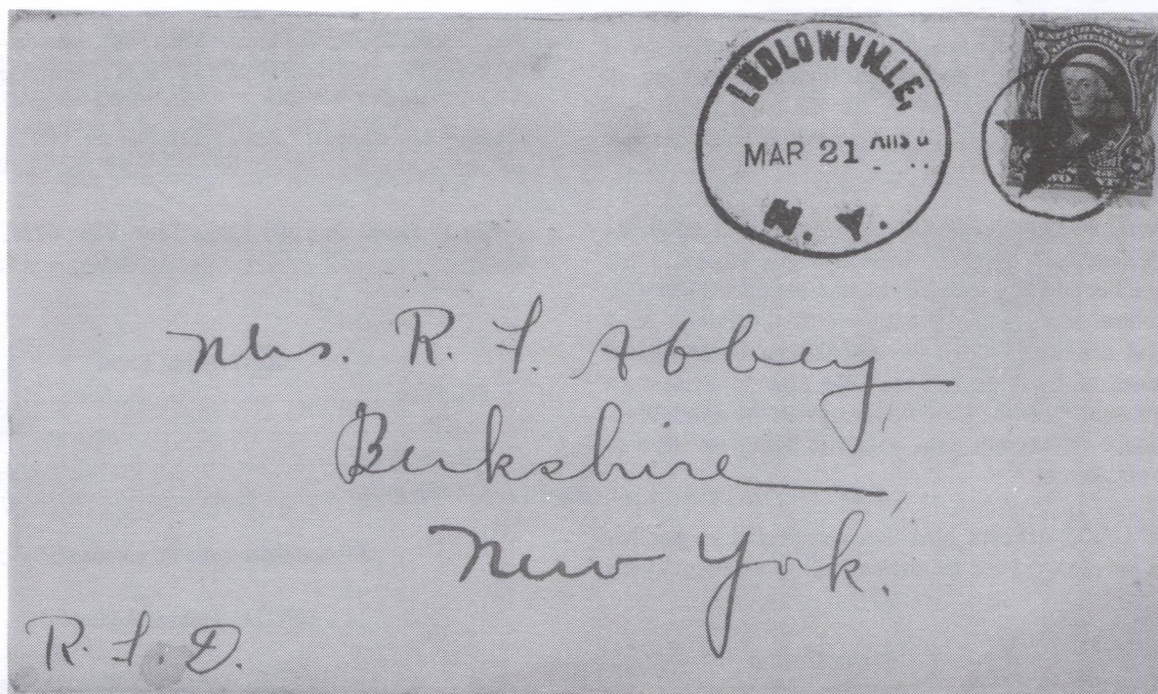 LUDLOWVILLE,
MAR 21
N. Y.
Mrs. R. F. Abbey
Berkshire
New York.
R. F. D.